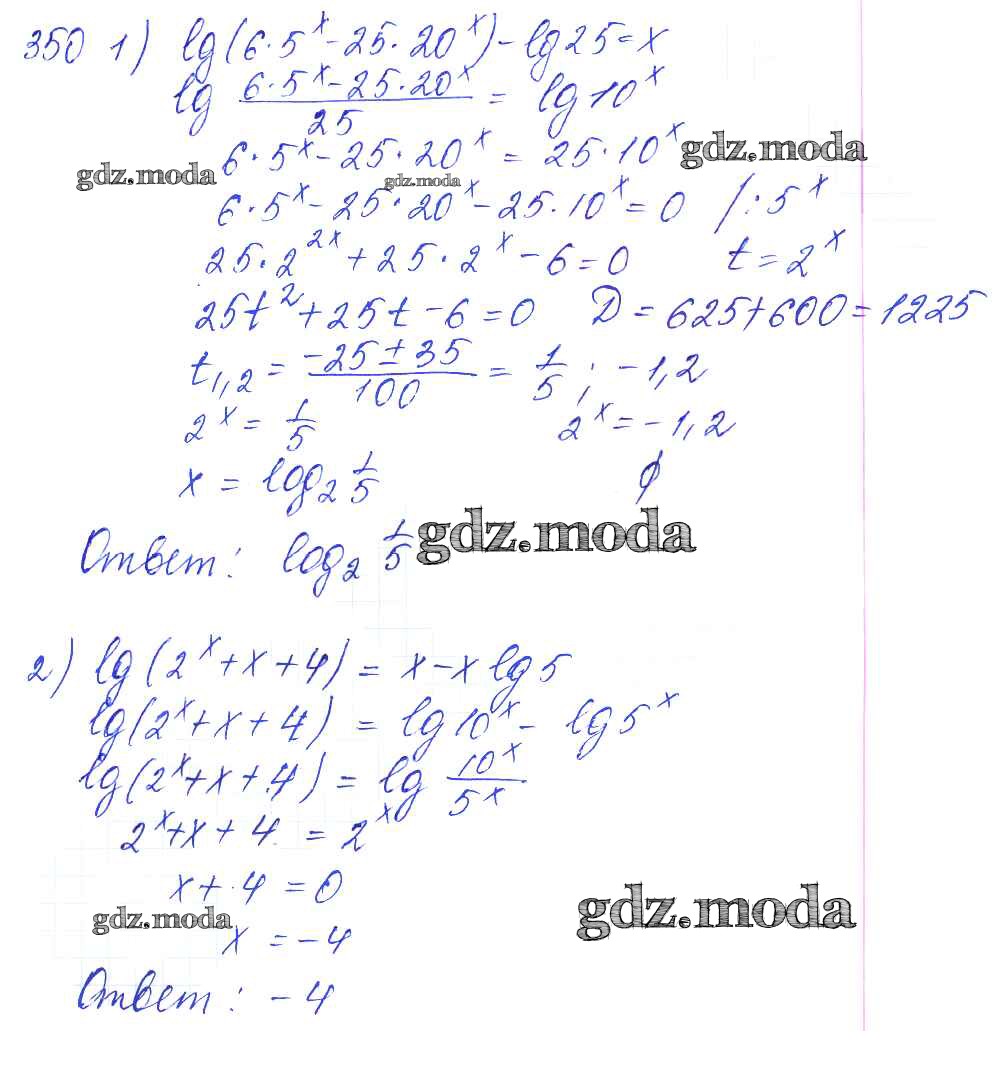 350 1) lg(6·5^x - 25·20^x) - lg25 = x
lg (6·5^x - 25·20^x)/25 = lg10^x
6·5^x - 25·20^x = 25·10^x gdz.moda
gdz.moda gdz.moda
6·5^x - 25·20^x - 25·10^x = 0 /:5^x
25·2^2x + 25·2^x - 6 = 0 t = 2^x
25t^2 + 25t - 6 = 0 D = 625 + 600 = 1225
t1,2 = (-25 ± 35)/100 = 1/5 ; -1,2
2^x = 1/5 2^x = -1,2
x = log2 1/5 ∅
Ответ: log2 1/5 gdz.moda
2) lg(2^x + x + 4) = x - x lg5
lg(2^x + x + 4) = lg10^x - lg5^x
lg(2^x + x + 4) = lg 10^x/5^x
2^x + x + 4 = 2^x
x + 4 = 0
gdz.moda gdz.moda
x = -4
Ответ: -4